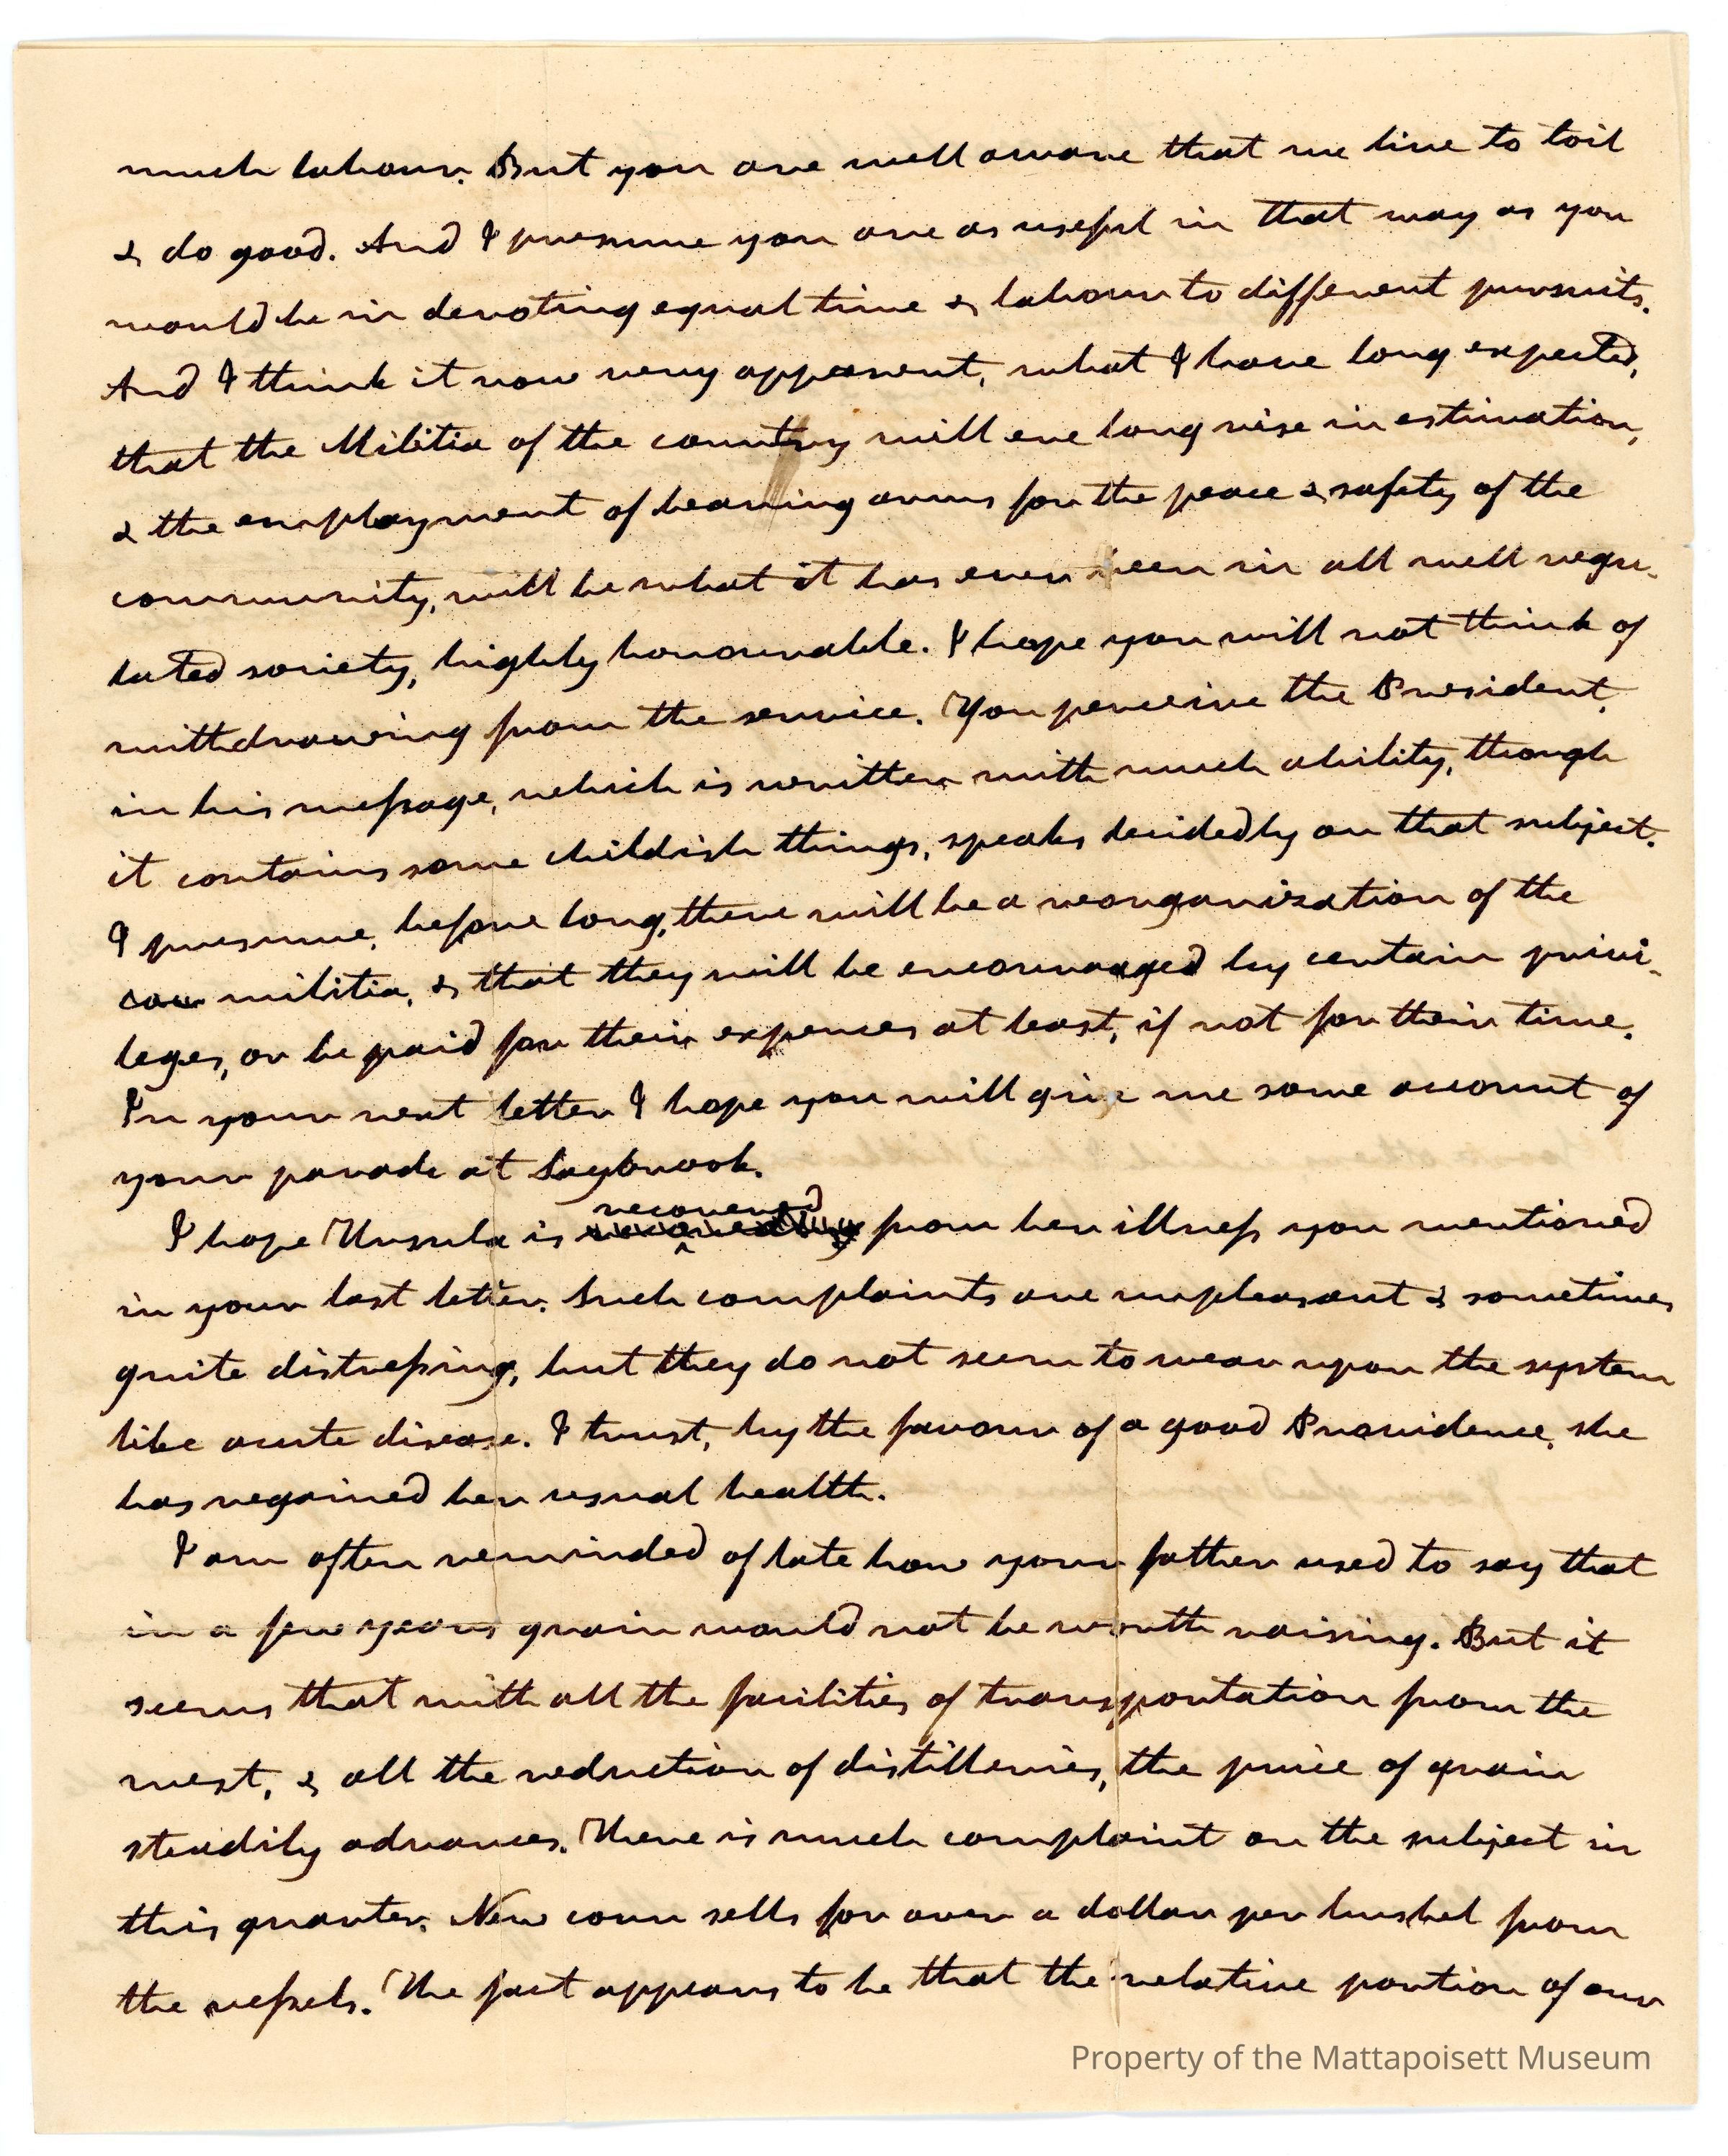 much labour. But you are well aware that we live to toil
& do good. And I presume you are as useful in that way as you
would be in devoting equal time & labour to different pursuits.
And I think it now very apparent, what I have long expected,
that the Militia of the country will ere long rise in estimation,
& the employment of bearing arms for the peace & safety of the
community, will be what it has ever been in all well regu-
lated society, highly honourable. I hope you will not think of
withdrawing from the service. You perceive the President,
in his message, which is written with much ability, though
it contains some childish things, speaks decidedly on that subject.
I presume, before long, there will be a reorganization of the
militia, & that they will be encouraged by certain privi-
leges, or be paid for their expences at least, if not for their time.
In your next letter I hope you will give me some account of
your parade at Saybrook.
I hope Ursula is recovered from her illness you mentioned
in your last letter. Such complaints are unpleasant & sometimes
quite distressing, but they do not seem to wear upon the system
like acute disease. I trust, by the favour of a good Providence, she
has regained her usual health.
I am often reminded of late how your father used to say that
in a few years grain would not be worth raising. But it
seems that with all the facilities of transportation from the
west, & all the reduction of distilleries, the price of grain
steadily advances. There is much complaint on the subject in
this quarter. New corn sells for over a dollar per bushel from
the vessels. The fact appears to be that the relative portion of our
Property of the Mattapoisett Museum